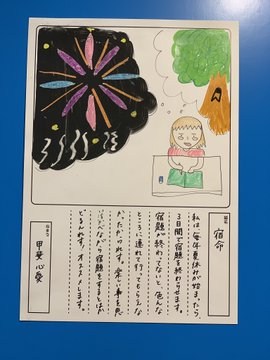 題名
宿命
私は毎年夏休みが始まったら、
3日間で宿題を終わらせます。
宿題が終わってないと、色んな
ところに連れて行ってもらえな
かったからです。楽しい事を思
いうかべながら宿題をするとはか
どるんです。オススメします。
なまえ
甲斐心愛